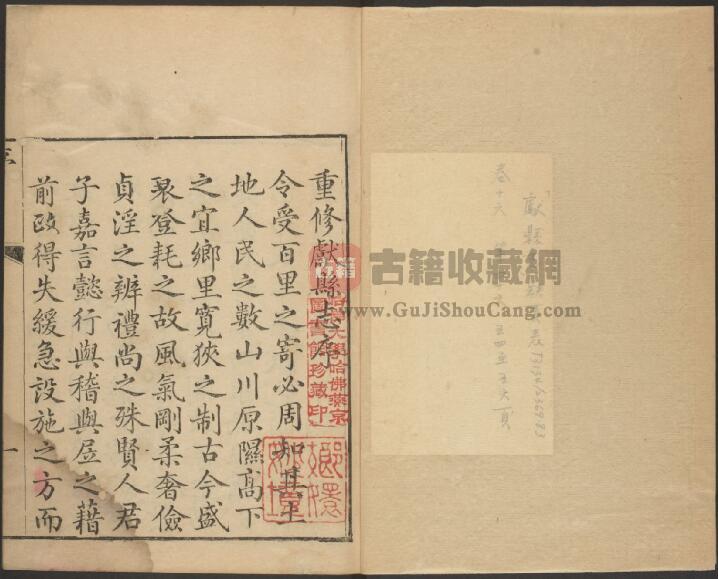 重修獻縣志序
令受百里之寄必周知其土
地人民之數山川原隰高下
之宜鄉里寬狹之制古今盛
衰登耗之故風氣剛柔奢儉
貞淫之辨禮尚之殊賢人君
子嘉言懿行與稽與居之藉
前政得失緩急設施之方而
一
大學哈佛燕京
圖書館珍藏印
獻縣
卷十六
古籍收藏網
www.GuJiShouCang.com